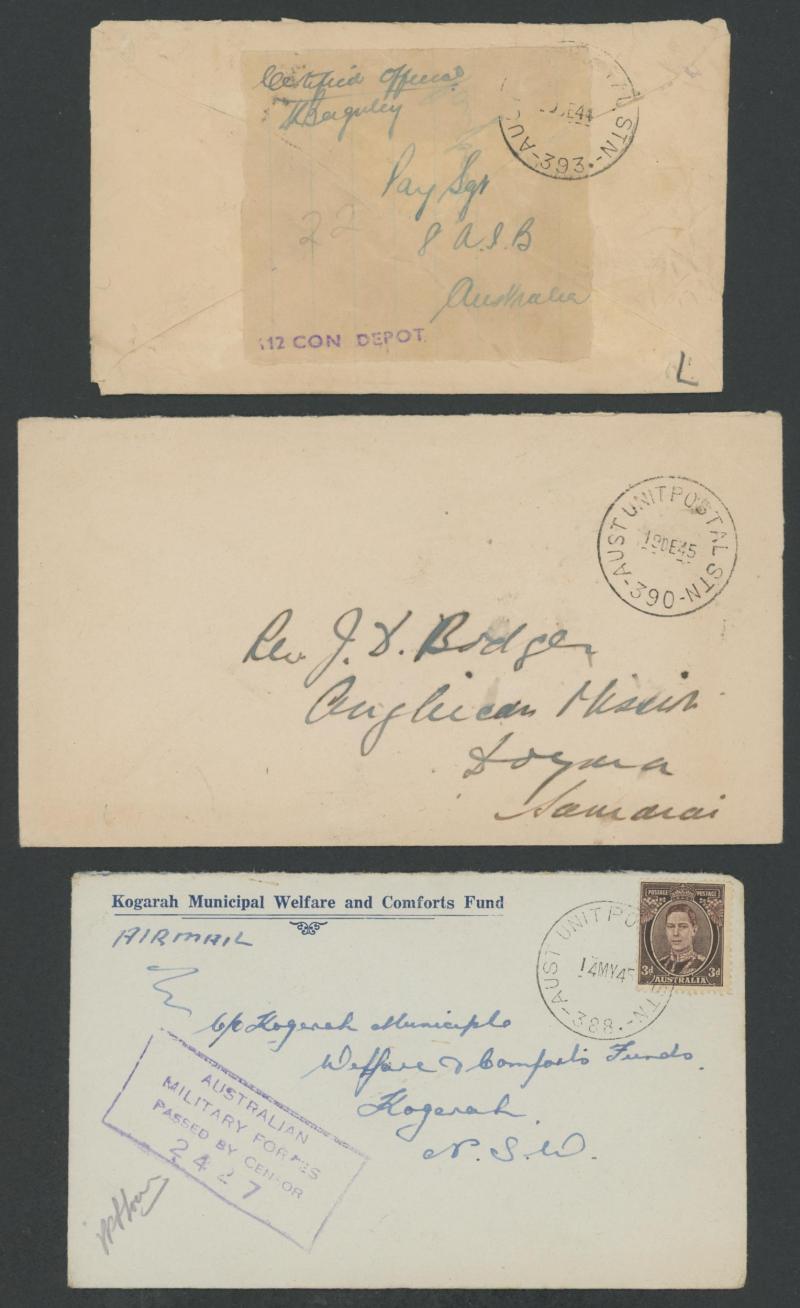 Certified Official
Pay Sgt
22
8 A.I.B
Australia
112 CON DEPOT
DE44
-AUS STN-
393
L
-AUST UNIT POSTAL STN-
19DE45
390
Rev J. D. Bodger
Anglican Mission
Dogura
Samarai
Kogarah Municipal Welfare and Comforts Fund
AIRMAIL
-AUST UNIT PO STN-
14MY45
388
POSTAGE POSTAGE
3d 3d
AUSTRALIA
C/o Kogarah Municiple
Welfare & Comforts Funds.
Kogarah.
N.S.W.
AUSTRALIAN
MILITARY FORCES
PASSED BY CENSOR
2427